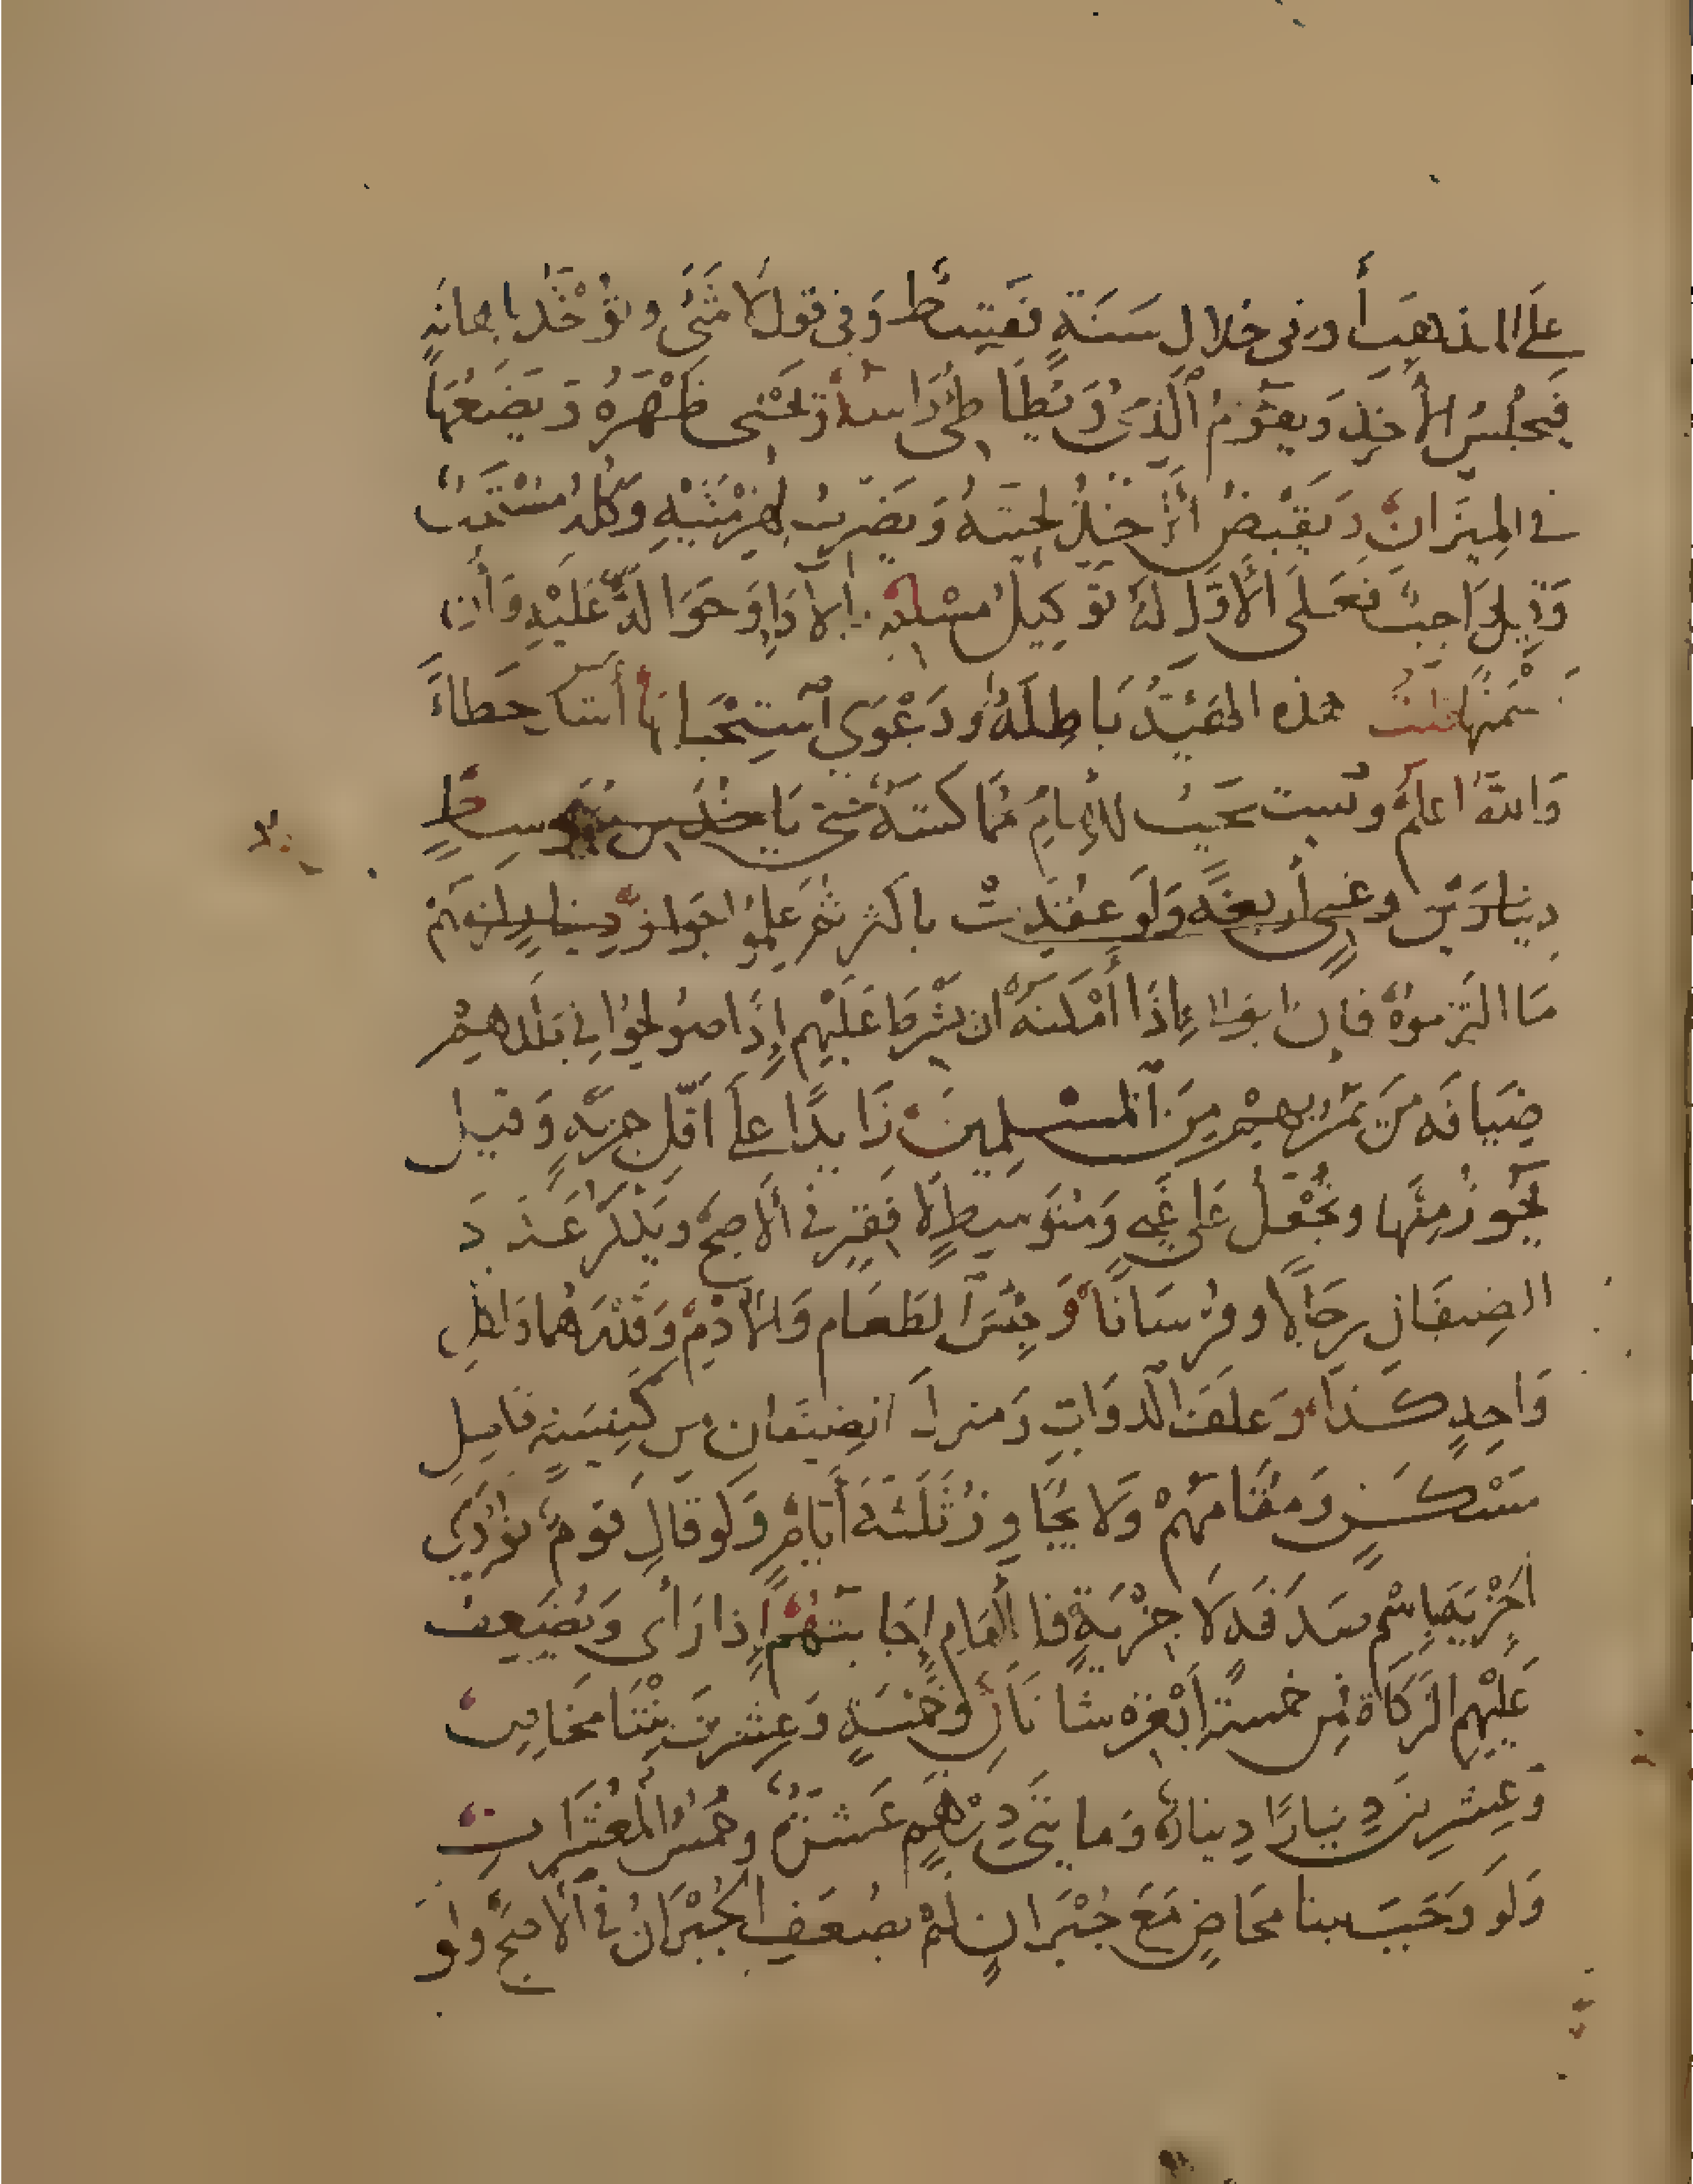 على المذهب أو في خلال سنة فقسط وفي قول لا شيء وتؤخذ بإهانة
فيجلس الآخذ ويقوم الذمي ويطأطئ رأسه ويحني ظهره ويضعها
في الميزان ويقبض الآخذ لحيته ويضرب لهزمتيه وكله مستحب
وقيل واجب فعلى الأول له توكيل مسلم بالأداء وحوالة عليه وأن
يضمنها قلت هذه الهيئة باطلة ودعوى استحبابها أشد خطاء
والله اعلم ويستحب للإمام مماكسة حتى ياخذ من متوسط
دينارين وغني أربعة ولو عقدت بأكثر ثم علموا جواز دينار لزمهم
ما التزموه فإن ابوا إذا أمكنه ان يشرط عليهم إذا صولحوا في بلدهم
ضيافة من يمر بهم من المسلمين زايدا على اقل جزية وقيل
يجوز منها وتجعل على غني ومتوسط لا فقير في الاصح ويذكر عدد
الضيفان رجالا وفرسانا وجنس الطعام والأدم وقدرهما ولكل
واحد كذا وعلف الدواب ومنزل الضيفان من كنيسة فاضل
مسكن ومقامهم ولا يجاوز ثلثة أيام ولو قال قوم نؤدي
الجزية باسم صدقة لا جزية فللإمام إجابتهم إذا رأى ويضعف
عليهم الزكاة فمن خمسة أبعرة شاتان وخمسة وعشرين بنتا مخاض
وعشرين دينارا دينار ومايتي درهم عشرة وخمس المعشرات
ولو وجب بنتا مخاض مع جبران لم يضعف الجبران في الاصح ولو